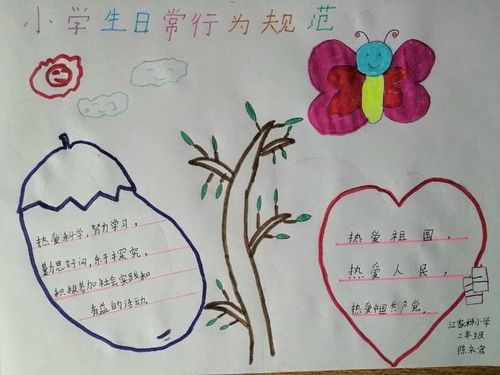 小学生日常行为规范
热爱科学，努力学习，
勤思好问，乐于探究，
积极参加社会实践和
有益的活动
热爱祖国，
热爱人民，
热爱中国共产党。
小学
二年级